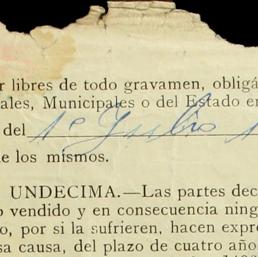 r libres de todo gravamen, obligá
ales, Municipales o del Estado en
del 1º Julio 1
e los mismos.
UNDECIMA.—Las partes dec
o vendido y en consecuencia ning
o, por si la sufrieren, hacen expre
sa causa, del plazo de cuatro año